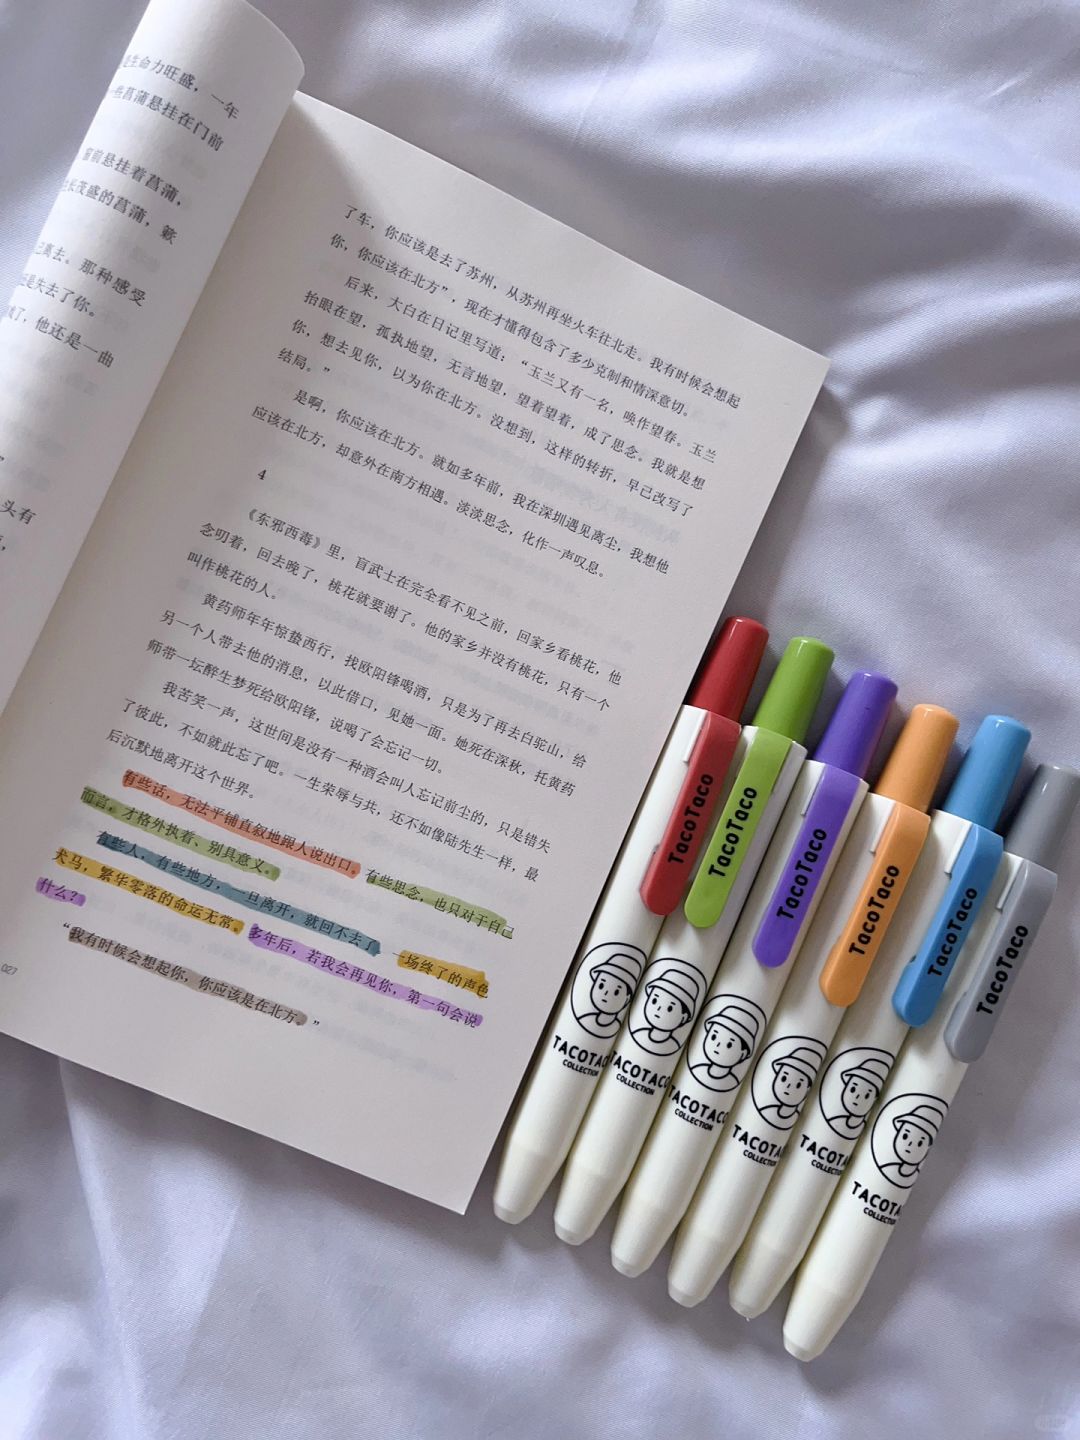 是生命力旺盛，一年
一些菖蒲悬挂在门前
窗前悬挂着菖蒲，
生长茂盛的菖蒲，簌
已离去。那种感受
还是失去了你。
了，他还是一曲
”
头有
027
了车，你应该是去了苏州，从苏州再坐火车往北走。我有时候会想起
你，你应该在北方”，现在才懂得包含了多少克制和情深意切。
后来，大白在日记里写道：“玉兰又有一名，唤作望春。玉兰
抬眼在望，孤执地望，无言地望，望着望着，成了思念。我就是想
你，想去见你，以为你在北方。没想到，这样的转折，早已改写了
结局。”
是啊，你应该在北方。就如多年前，我在深圳遇见离尘，我想他
应该在北方，却意外在南方相遇。淡淡思念，化作一声叹息。
4
《东邪西毒》里，盲武士在完全看不见之前，回家乡看桃花，他
念叨着，回去晚了，桃花就要谢了。他的家乡并没有桃花，只有一个
叫作桃花的人。
黄药师年年惊蛰西行，找欧阳锋喝酒，只是为了再去白驼山，给
另一个人带去他的消息，以此借口，见她一面。她死在深秋，托黄药
师带一坛醉生梦死给欧阳锋，说喝了会忘记一切。
我苦笑一声，这世间是没有一种酒会叫人忘记前尘的，只是错失
了彼此，不如就此忘了吧。一生荣辱与共，还不如像陆先生一样，最
后沉默地离开这个世界。
有些话，无法平铺直叙地跟人说出口。有些思念，也只对于自己
而言，才格外执着、别具意义。
有些人，有些地方，一旦离开，就回不去了。一场终了的声色
犬马，繁华零落的命运无常。多年后，若我会再见你，第一句会说
什么？
“我有时候会想起你，你应该是在北方。”
TacoTaco
TacoTaco
TacoTaco
TacoTaco
TacoTaco
TacoTaco
TACOTAC
COLLECTION
TACOTACO
COLLECTION
TACOTACO
COLLECTION
TACOTA
COLLECTION
TACOTA
COLLECTION
TACOTA
COLLECTION